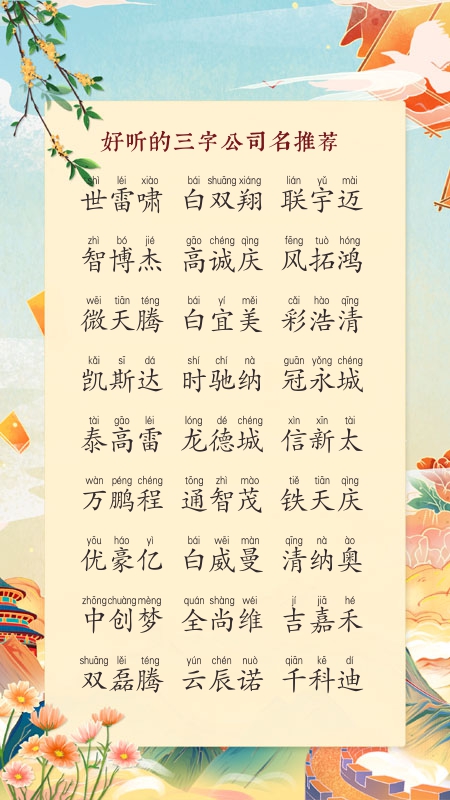 好听的三字公司名推荐
shì léi xiào bái shuāng xiáng lián yǔ mài
世雷啸 白双翔 联宇迈
zhì bó jié gāo chéng qìng fēng tuò hóng
智博杰 高诚庆 风拓鸿
wēi tiān téng bái yí měi cǎi hào qīng
微天腾 白宜美 彩浩清
kǎi sī dá shí chí nà guān yǒng chéng
凯斯达 时驰纳 冠永城
tài gāo léi lóng dé chéng xìn xīn tài
泰高雷 龙德城 信新太
wàn péng chéng tōng zhì mào tiě tiān qìng
万鹏程 通智茂 铁天庆
yōu háo yì bái wēi màn qīng nà ào
优豪亿 白威曼 清纳奥
zhōng chuàng mèng quán shàng wéi jí jiā hé
中创梦 全尚维 吉嘉禾
shuāng lěi téng yún chén nuò qiān kē dí
双磊腾 云辰诺 千科迪